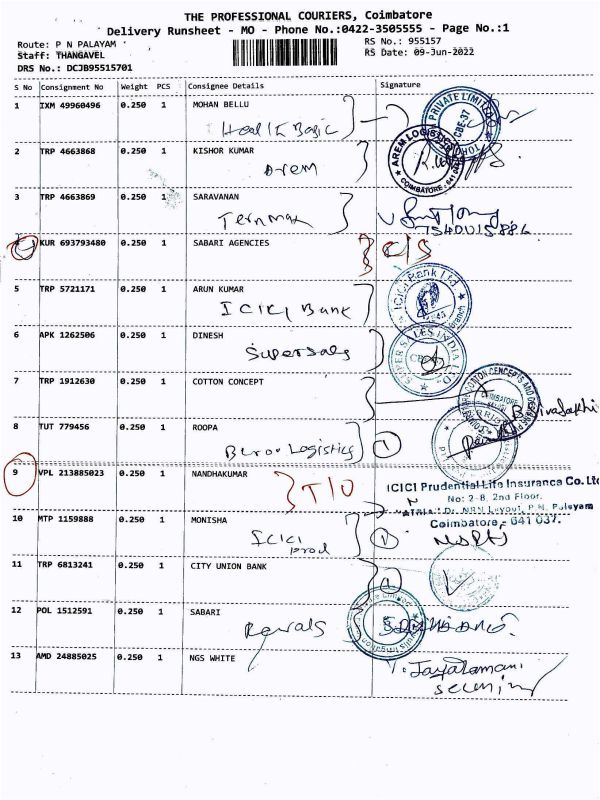 THE PROFESSIONAL COURIERS, Coimbatore
Delivery Runsheet - MO - Phone No.:0422-3505555 - Page No.:1
Route: P N PALAYAM
Staff: THANGAVEL
DRS No.: DCJB95515701
RS No.: 955157
RS Date: 09-Jun-2022
S No Consignment No Weight PCS Consignee Details Signature
1 IXM 49960496 0.250 1 MOHAN BELLU
PRIVATE LIMITED
CBE-37
2 TRP 4663868 0.250 1 KISHOR KUMAR
Arem
AREM LOGISTICS
COIMBATORE - 641
3 TRP 4663869 0.250 1 SARAVANAN
4 KUR 693793480 0.250 1 SABARI AGENCIES
C/S
5 TRP 5721171 0.250 1 ARUN KUMAR
ICICI Bank
ICICI Bank Ltd.
6 APK 1262506 0.250 1 DINESH
SUPER SALES INDIA LTD
7 TRP 1912630 0.250 1 COTTON CONCEPT
COTTON CONCEPTS AND
COIMBATORE
8 TUT 779456 0.250 1 ROOPA
Logistics 1
9 VPL 213885023 0.250 1 NANDHAKUMAR
ICICI Prudential Life Insurance Co. Ltd
No: 2-8, 2nd Floor.
NRN Layout, P N. Palayam
Coimbatore - 641 037.
10 MTP 1159888 0.250 1 MONISHA
ICICI
prod
11 TRP 6813241 0.250 1 CITY UNION BANK
12 POL 1512591 0.250 1 SABARI
13 AMD 24885025 0.250 1 NGS WHITE